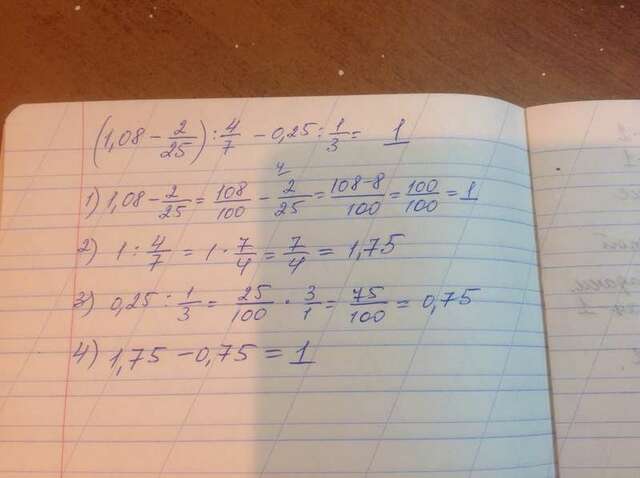 (1,08 - 2/25) : 4/7 - 0,25 : 1/3 = 1
1) 1,08 - 2/25 = 108/100 - 2/25 ⁴ = 108-8/100 = 100/100 = 1
2) 1 : 4/7 = 1 · 7/4 = 7/4 = 1,75
3) 0,25 : 1/3 = 25/100 · 3/1 = 75/100 = 0,75
4) 1,75 - 0,75 = 1